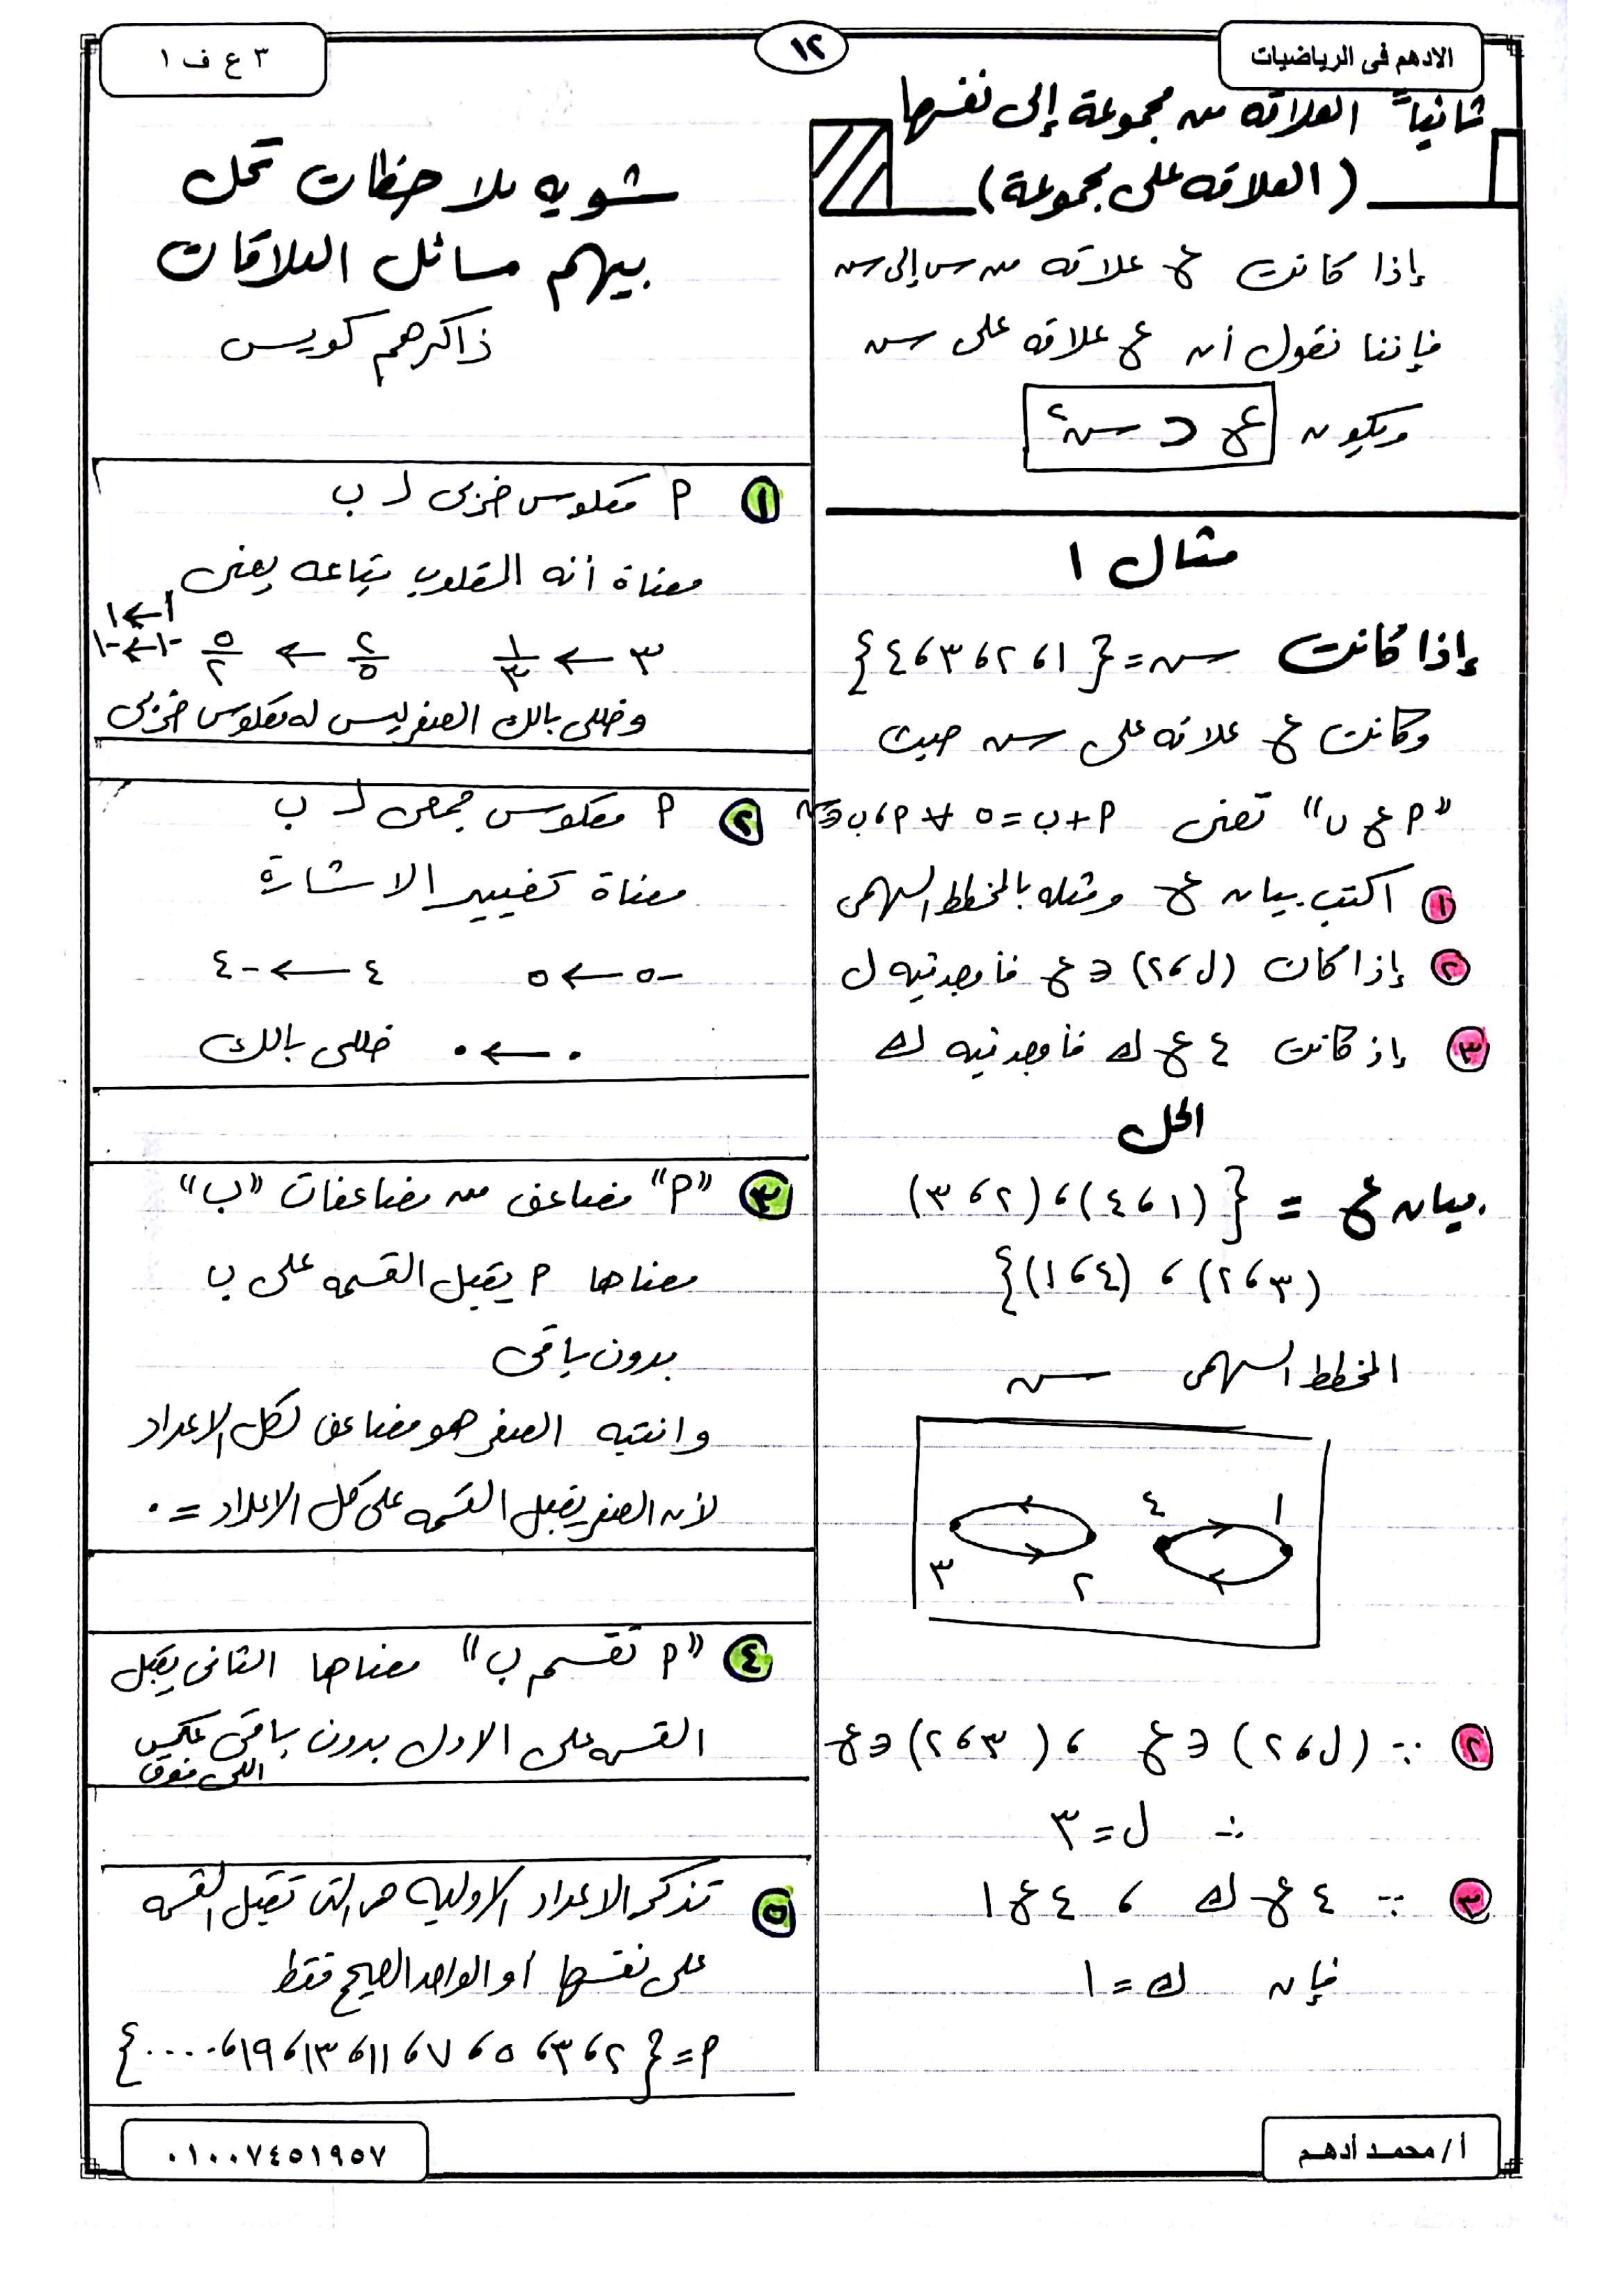 الادهم فى الرياضيات
١٢
٣ ع ف ١
ثانياً العلاقه من مجموعة إلى نفسها
(العلاقه على مجموعة)
إذا كانت ع علاقه من س إلى س
فإننا نقول أن ع علاقه على س
ويكون ع ⊂ س٢
مثال ١
إذا كانت س = {١، ٢، ٣، ٤}
وكانت ع علاقه على س حيث
"P ع ب" تعنى P + ب = ٥ ∀ P، ب ∈ س
١ اكتب بيان ع ومثله بالمخطط السهمى
٢ إذا كان (ل، ٢) ∈ ع فأوجد قيه ل
٣ إذ كانت ٤ ع ك فأوجد قيه ك
الحل
بيان ع = {(١، ٤)، (٢، ٣)
(٣، ٢)، (٤، ١)}
المخطط السهمى س
٤ ١
٣ ٢
٢ ∵ (ل، ٢) ∈ ع ، (٣، ٢) ∈ ع
∴ ل = ٣
٣ ∵ ٤ ع ك ، ٤ ع ١
فإن ك = ١
شويه ملاحظات تحل
بيهم مسائل العلاقات
ذاكرهم كويس
١ P معكوس ضربى لـ ب
معناة انه المقلوب بتاعه يعنى
٣ ← ١/٣ ٢/٥ ← ٥/٢ ١ ← ١
-١ ← -١
وخللى بالك الصفر ليس له معكوس ضربى
٢ P معكوس جمعى لـ ب
معناة تغيير الاشارة
-٥ ← ٥ ٤ ← -٤
٠ ← ٠ خللى بالك
٣ "P" مضاعف من مضاعفات "ب"
معناها P يقبل القسمه على ب
بدون باقى
وانتبه الصفر هو مضاعف لكل الاعداد
لأن الصفر يقبل القسمه على كل الاعداد = ٠
٤ "P تقسم ب" معناها الثانى يقبل
القسمه على الاول بدون باقى عكس
اللى فوق
٥ تذكر الاعداد الاوليه هى التى تقبل القسمه
على نفسها أو الواحد الصحيح فقط
P = {٢، ٣، ٥، ٧، ١١، ١٣، ١٩، ....}
أ/ محمد أدهم
٠١٠٠٧٤٥١٩٥٧